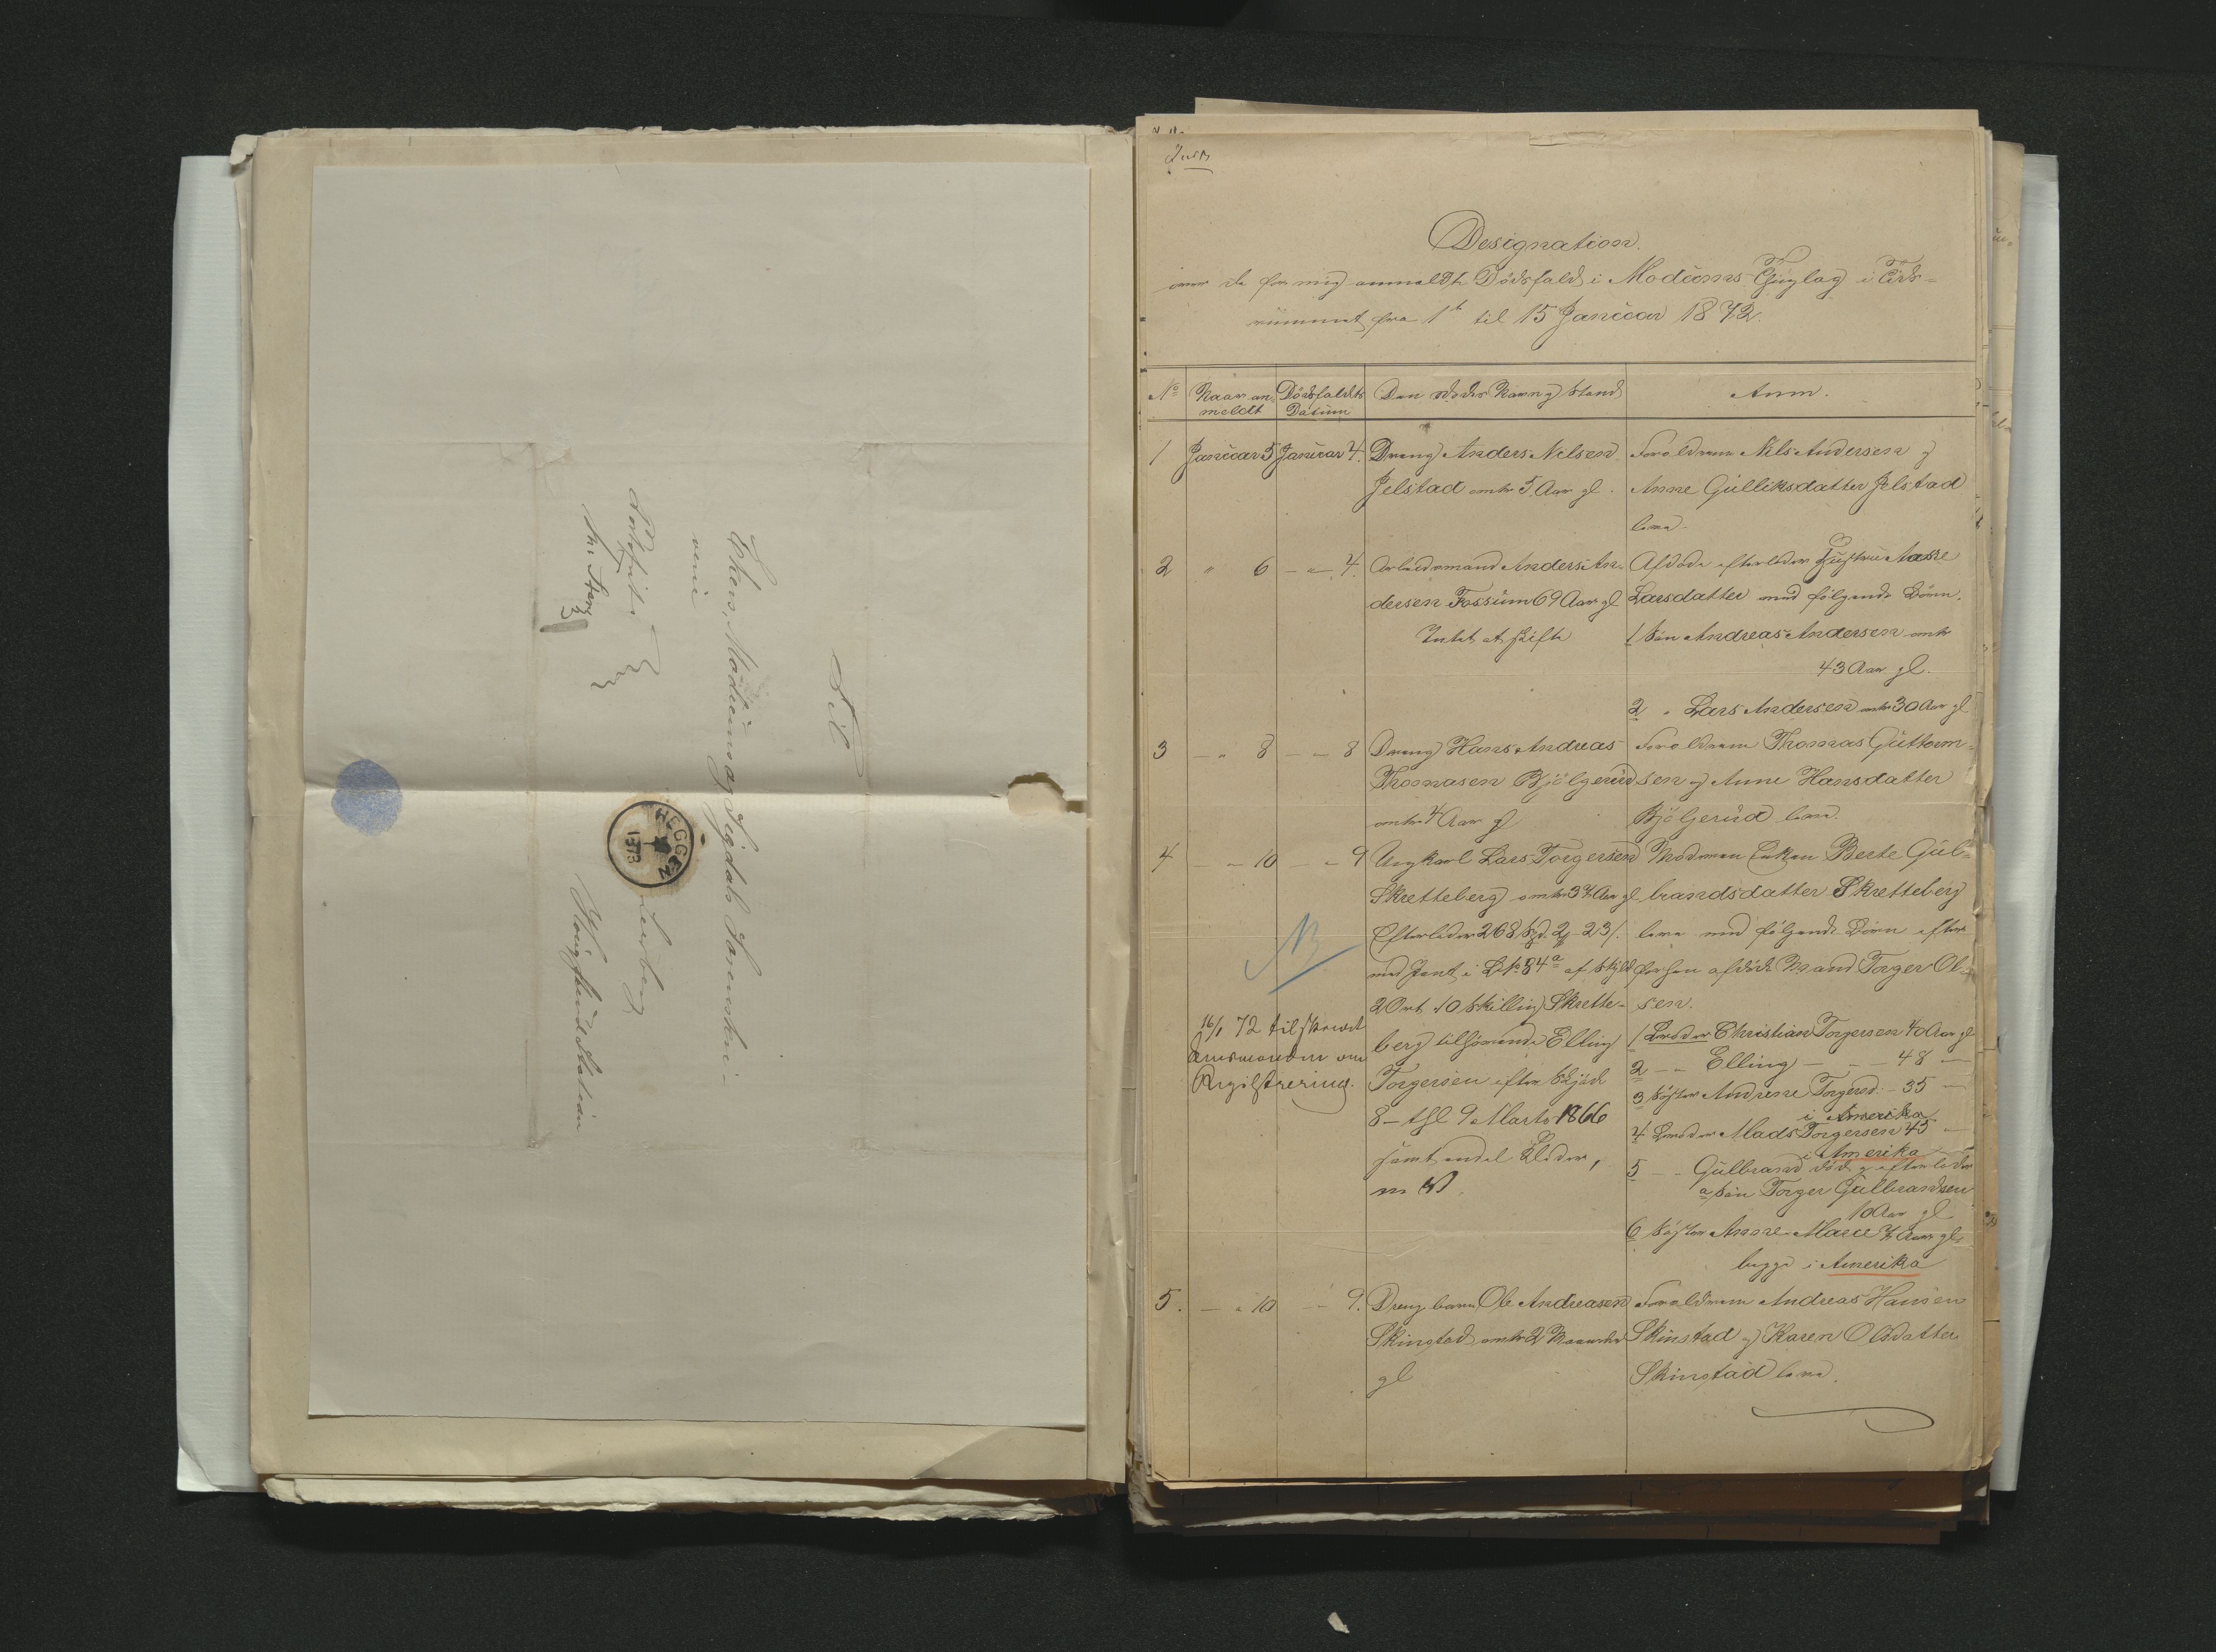 Til
Ehrv. Modums og Sigdals Sorenskri-
veri
Portofrit
HEGGEN
1873
Vougsund Station
Designation.
over de for mig anmeldte Dödsfald i Modums Thinglag i Tids-
rummet fra 1te til 15 Januar 1872.
No
Naar an-
meldt
Dödsfaldets
Datum
Den dödes Navn og Stand
Anm.
1 Januar 5 Januar 4. Dreng Anders Nilsen
Jelstad omtr 5 Aar gl.
Foreldrene Nils Andersen og
Anne Gulliksdatter Jelstad
leve.
2 " 6 - " - 4. Arbeidsmand Anders An-
dersen Fossum 69 Aar gl
Intet at skifte
Afdöde efterlader Hustru Aasse
Larsdatter med fölgende Börn.
1 Sön Andreas Andersen omtr
43 Aar gl.
2 " Lars Andersen omtr 30 Aar gl
3 - " 8 - " - 8 Dreng Hans Andreas
Thomasen Bjölgerud
omtr 4 Aar gl
Foreldrene Thomas Guttorm-
sen og Anne Hansdatter
Bjölgerud leve.
4 - " 10 - " 9 Ungkarl Lars Torgersen
Skretteberg omtr 37 Aar gl
Efterlader 268 Spd. 2 23 s.
med Pant i L No 84a af Skyld
2 Ort 10 Skilling Skrette-
berg tilhörende Elling
Torgersen efter Skjöde
8 - tgl 9 Marts 1866
samt endel Klæder,
NB
16/1 72 tilskrevet
Lensmanden om
Registrering.
Moderen Enken Berte Gul-
brandsdatter Skretteberg
leve med fölgende Börn efter
forhen afdöde Mand Torger Ol-
sen.
1 Broder Christian Torgersen 40 Aar gl
2 - " Elling - " - 48 -
3 Söster Andrine Torgersd. - 35 -
i Amerika
4 Broder Mads Torgersen 45 -
i Amerika
5 - " Gulbrand död og efterlader
a, Sön Torger Gulbrandsen
10 Aar gl
6 Söster Anne Marie Aar gl.
begge i Amerika
5. - " 10 - " 9. Drengebarn Ole Andreasen
Skinstad omtr 2 Maaneder
gl
Foreldrene Andreas Hansen
Skinstad og Karen Olsdatter
Skinstad leve.